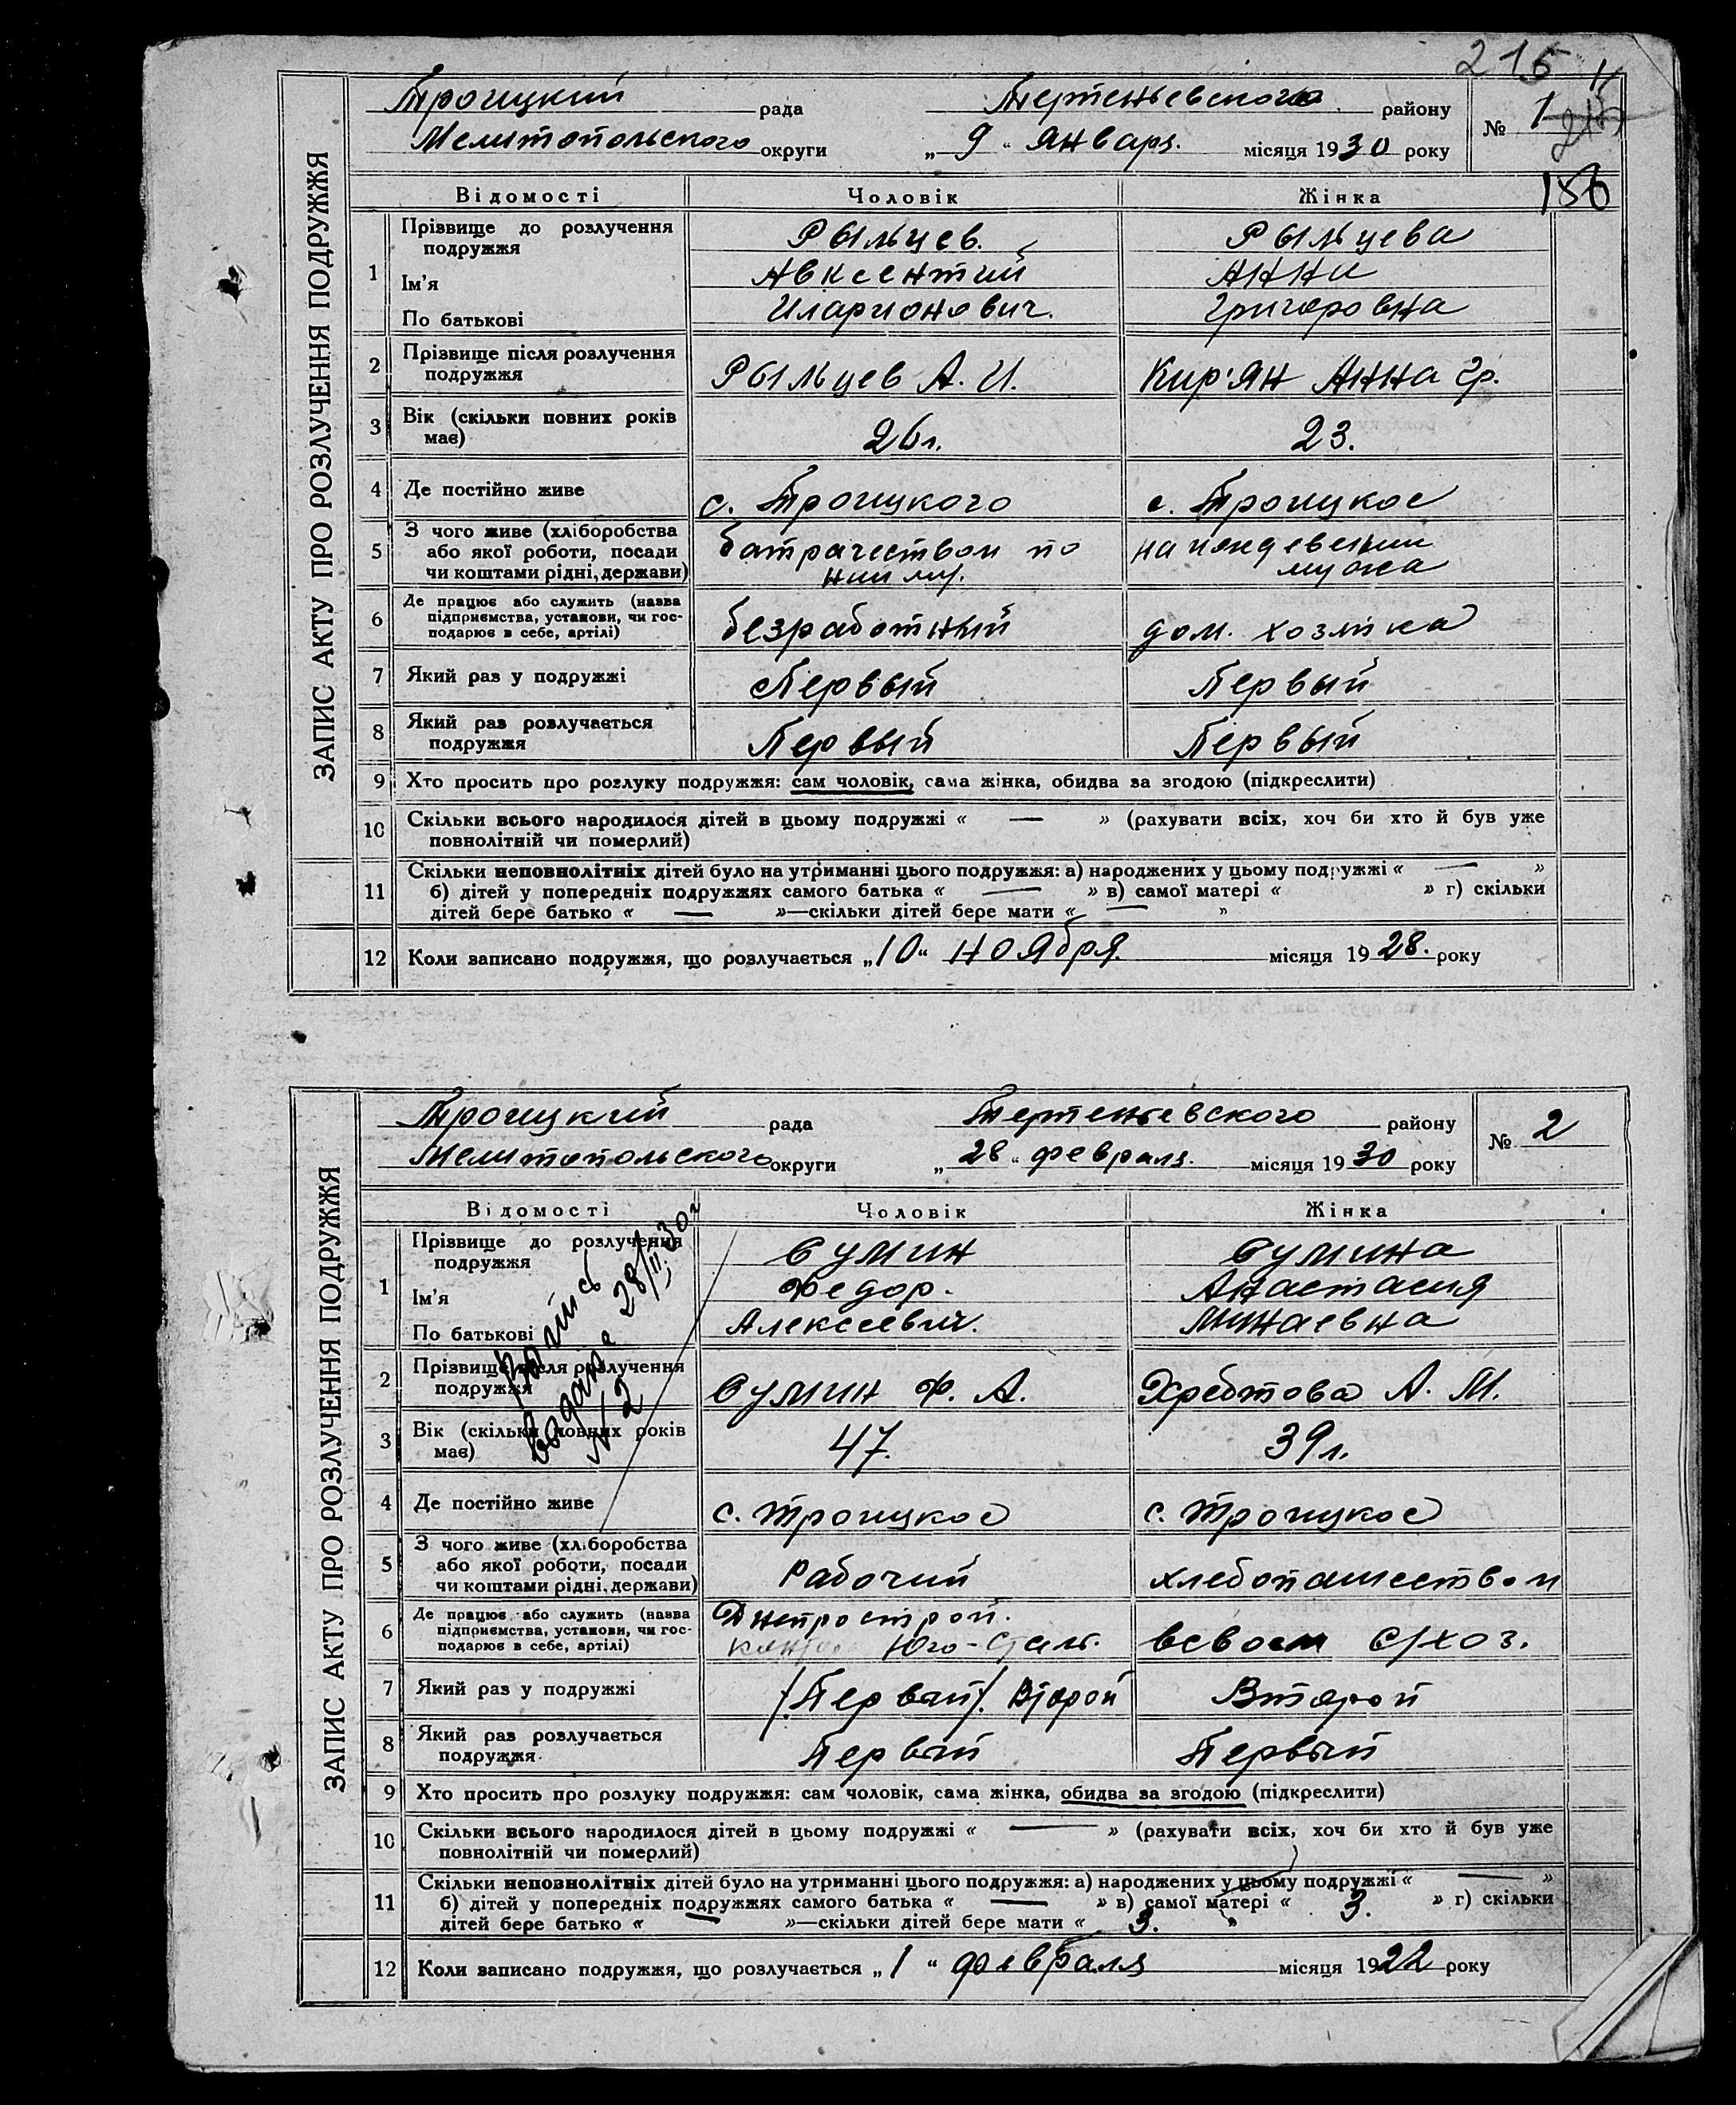 215
Троицкий рада Тертеньевского району № 1
Мелитопольского округи „ 9 “ января. місяця 1930 року
156
Відомості Чоловік Жінка
ЗАПИС АКТУ ПРО РОЗЛУЧЕННЯ ПОДРУЖЖЯ
1 Прізвище до розлучення подружжя Рыльцев. Рыльцева
Ім’я Авксентий Анна
По батькові Иларионович. Григоровна
2 Прізвище після розлучення
подружжя Рыльцев А. И. Кир'ян Анна Гр.
3 Вік (скільки повних років
має) 26 л. 23.
4 Де постійно живе с. Троицкого с. Троицкое
5 З чого живе (хліборобства
або якої роботи, посади батрачеством по на иждевении
чи коштами рідні, держави) найму. мужа
6 Де працює або служить (назва
підприємства, установи, чи гос- безработный дом. хозяйка
подарює в себе, артілі)
7 Який раз у подружжі Первый Первый
8 Який раз розлучається
подружжя Первый Первый
9 Хто просить про розлуку подружжя: сам чоловік, сама жінка, обидва за згодою (підкреслити)
10 Скільки всього народилося дітей в цьому подружжі « — » (рахувати всіх, хоч би хто й був уже
повнолітній чи померлий)
11 Скільки неповнолітніх дітей було на утриманні цього подружжя: а) народжених у цьому подружжі « — »
б) дітей у попередніх подружжях самого батька « — » в) самої матері « » г) скільки
дітей бере батько « — »—скільки дітей бере мати « — »
12 Коли записано подружжя, що розлучається „10“ ноября. місяця 1928. року
Троицкий рада Тертеньевского району № 2
Мелитопольского округи „ 28 “ февраля. місяця 1930 року
Відомості Чоловік Жінка
ЗАПИС АКТУ ПРО РОЗЛУЧЕННЯ ПОДРУЖЖЯ
28/II 30 г
№ 2
1 Прізвище до розлучення
подружжя Сумин Сумина
Ім’я Федор. Анастасия
По батькові Алексеевич. Минаевна
2 Прізвище після розлучення
подружжя Сумин Ф. А. Хребтова А. М.
3 Вік (скільки повних років
має) 47. 39 л.
4 Де постійно живе с. Троицкое с. Троицкое
5 З чого живе (хліборобства
або якої роботи, посади Рабочий хлебопашеством
чи коштами рідні, держави)
6 Де працює або служить (назва Днепрострой.
підприємства, установи, чи гос- Юго-Сталь. всвоем с/хоз.
подарює в себе, артілі)
7 Який раз у подружжі /Первый/. Второй Второй
8 Який раз розлучається
подружжя Первый Первый
9 Хто просить про розлуку подружжя: сам чоловік, сама жінка, обидва за згодою (підкреслити)
10 Скільки всього народилося дітей в цьому подружжі « — » (рахувати всіх, хоч би хто й був уже
повнолітній чи померлий)
11 Скільки неповнолітніх дітей було на утриманні цього подружжя: а) народжених у цьому подружжі « — »
б) дітей у попередніх подружжях самого батька « — » в) самої матері « 3. » г) скільки
дітей бере батько « — »—скільки дітей бере мати « 3. »
12 Коли записано подружжя, що розлучається „ 1 “ февраля місяця 1922 року